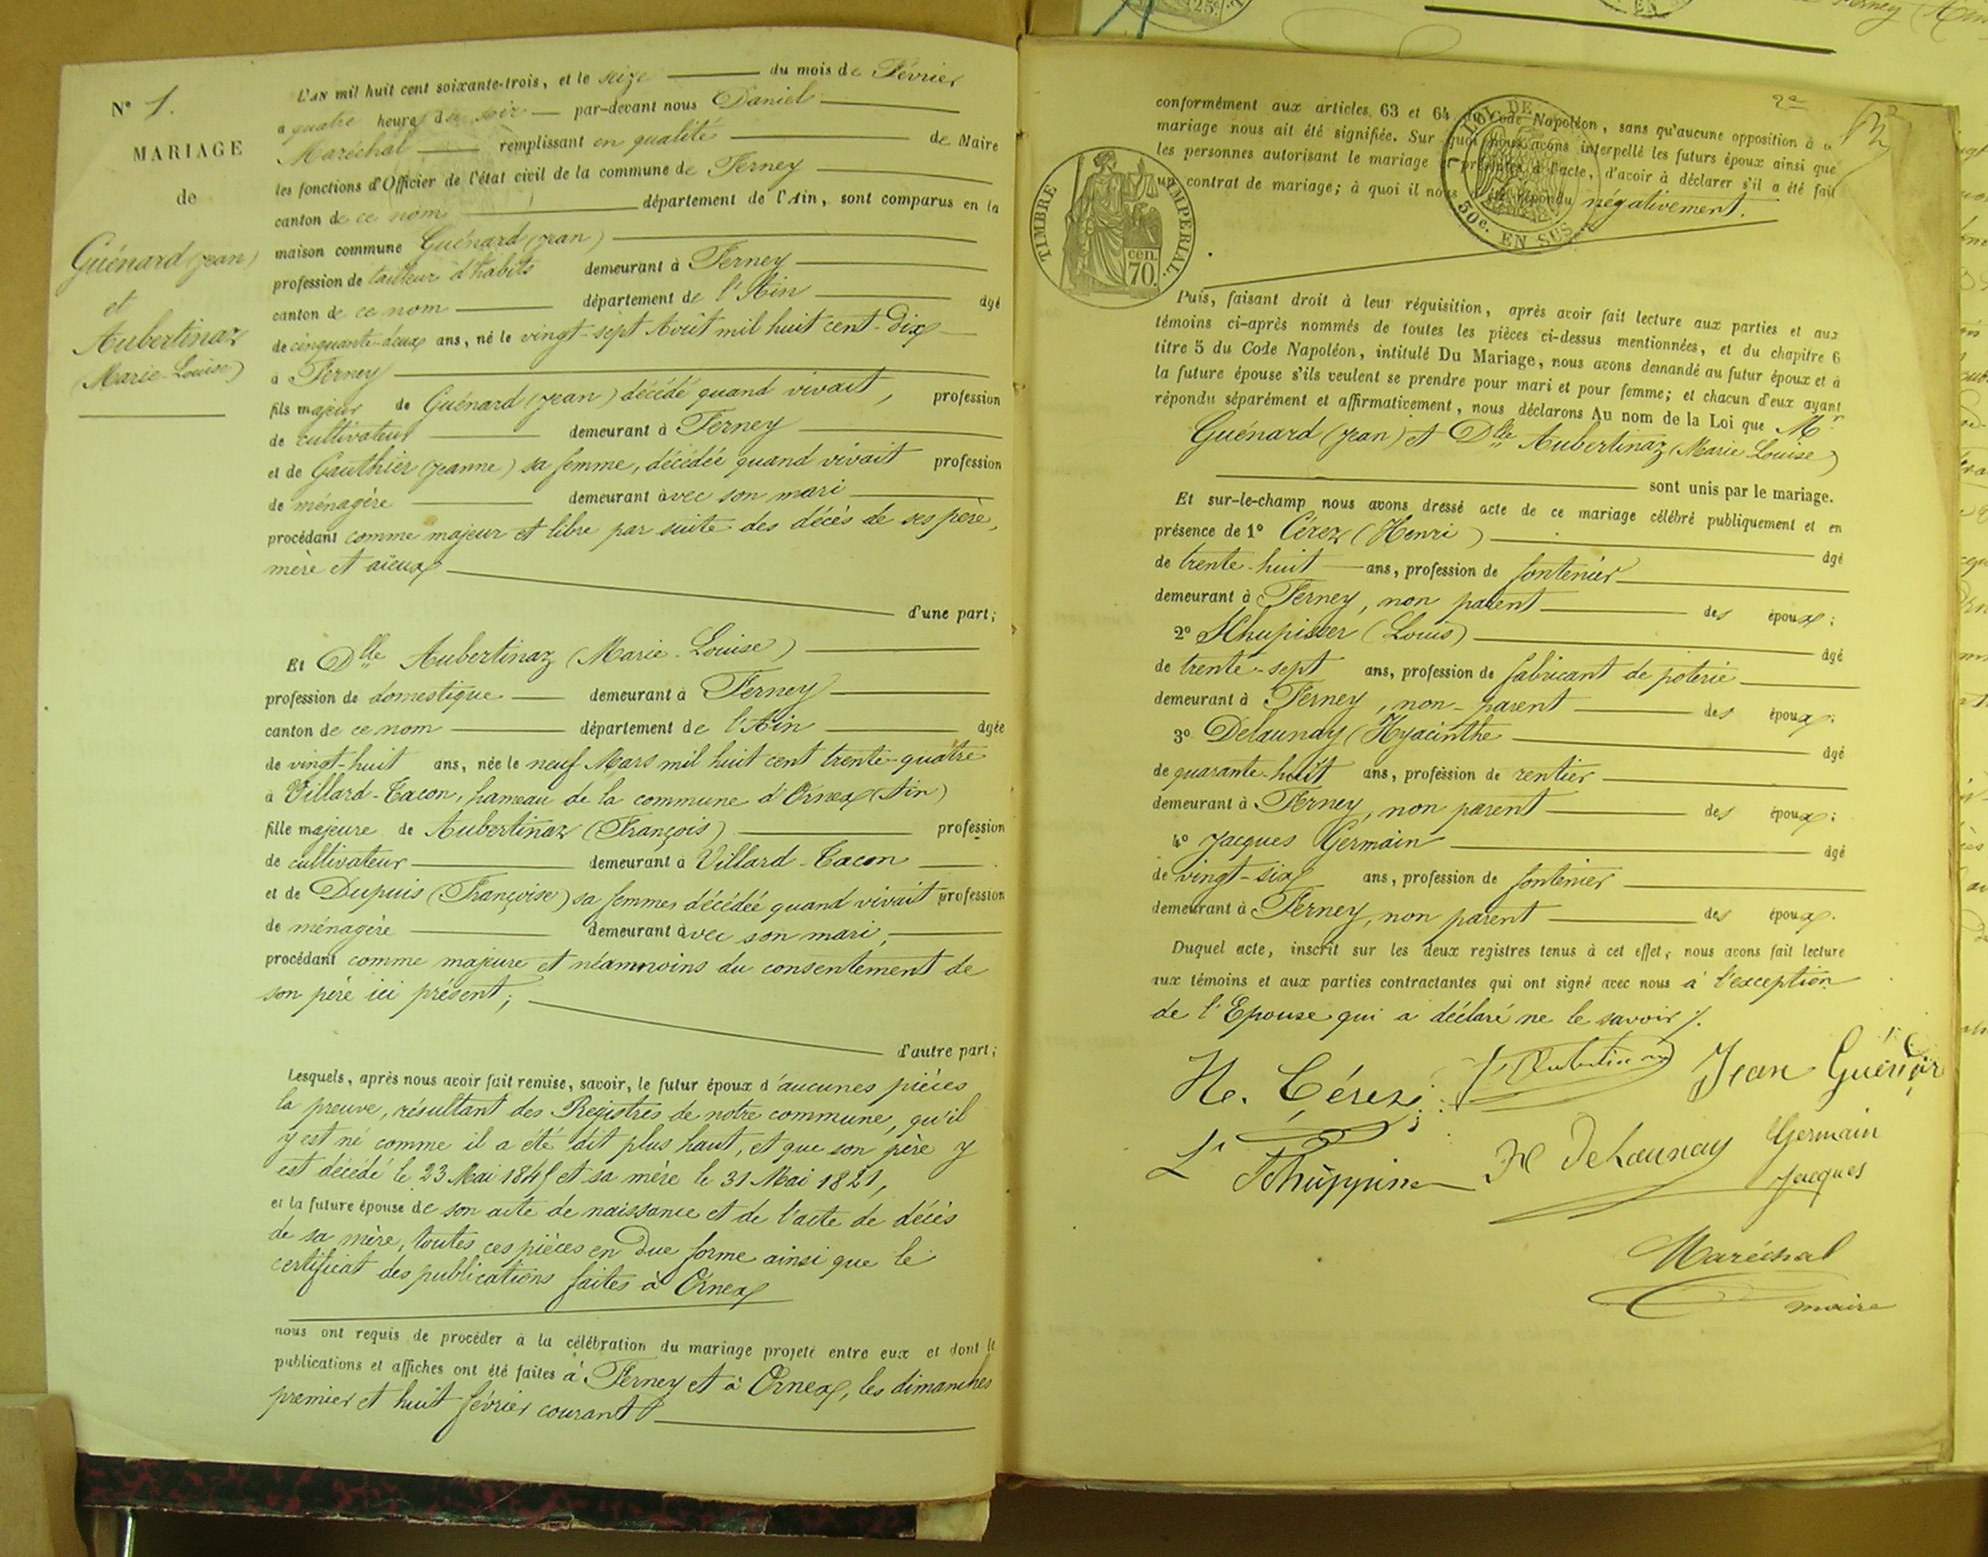 N° 1.
MARIAGE
de
Guénard (Jean)
et
Aubertinaz
(Marie-Louise)
L'AN mil huit cent soixante-trois, et le seize du mois de Février
à quatre heures du soir par-devant nous Daniel
Maréchal remplissant en qualité de Maire
les fonctions d'Officier de l'état civil de la commune de Ferney
canton de ce nom département de l'Ain, sont comparus en la
maison commune Guénard (Jean)
profession de tailleur d'habits demeurant à Ferney
canton de ce nom département de l'Ain âgé
de cinquante-deux ans, né le vingt-sept Août mil huit cent-dix
à Ferney
fils majeur de Guénard (Jean) décédé quand vivait, profession
de cultivateur demeurant à Ferney
et de Gauthier (Jeanne) sa femme, décédée quand vivait profession
de ménagère demeurant avec son mari
procédant comme majeur et libre par suite des décès de ses père,
mère et aïeux
d'une part;
Et Dlle Aubertinaz (Marie-Louise)
profession de domestique demeurant à Ferney
canton de ce nom département de l'Ain âgée
de vingt-huit ans, née le neuf Mars mil huit cent trente-quatre
à Villard-Tacon, hameau de la commune d'Ornex (Ain)
fille majeure de Aubertinaz (François) profession
de cultivateur demeurant à Villard-Tacon
et de Dupuis (Françoise) sa femme, décédée quand vivait profession
de ménagère demeurant avec son mari,
procédant comme majeure et néamnoins du consentement de
son père ici présent;
d'autre part;
Lesquels, après nous avoir fait remise, savoir, le futur époux d'aucunes pièces
la preuve, résultant des Registres de notre commune, qu'il
y est né comme il a été dit plus haut, et que son père y
est décédé le 23 Mai 184 et sa mère le 31 Mai 1821,
et la future épouse de son acte de naissance et de l'acte de décès
de sa mère, toutes ces pièces en due forme ainsi que le
certificat des publications faites à Ornex
nous ont requis de procéder à la célébration du mariage projeté entre eux et dont les
publications et affiches ont été faites à Ferney et à Ornex, les dimanches
premier et huit février courant
2e
conformément aux articles 63 et 64 du Code Napoléon, sans qu'aucune opposition à ce
mariage nous ait été signifiée. Sur quoi nous avons interpellé les futurs époux ainsi que
les personnes autorisant le mariage et présentes à l'acte, d'avoir à déclarer s'il a été fait
un contrat de mariage; à quoi il nous a été répondu négativement.
TIMBRE IMPÉRIAL.
cen. 70.
LOI DE
50c. EN SUS
Puis, faisant droit à leur réquisition, après avoir fait lecture aux parties et aux
témoins ci-après nommés de toutes les pièces ci-dessus mentionnées, et du chapitre 6
titre 5 du Code Napoléon, intitulé Du Mariage, nous avons demandé au futur époux et à
la future épouse s'ils veulent se prendre pour mari et pour femme; et chacun d'eux ayant
répondu séparément et affirmativement, nous déclarons Au nom de la Loi que Mr
Guénard (Jean) et Dlle Aubertinaz (Marie Louise)
sont unis par le mariage.
Et sur-le-champ nous avons dressé acte de ce mariage célébré publiquement et en
présence de 1° Cérez (Henri) âgé
de trente-huit ans, profession de fontenier
demeurant à Ferney, non parent des époux;
2° (Louis) âgé
de trente-sept ans, profession de fabricant de poterie
demeurant à Ferney, non-parent des époux;
3° Delaunay (Hyacinthe âgé
de quarante-huit ans, profession de rentier
demeurant à Ferney, non parent des époux;
4° Jacques Germain âgé
de vingt-six ans, profession de fontenier
demeurant à Ferney, non parent des époux.
Duquel acte, inscrit sur les deux registres tenus à cet effet, nous avons fait lecture
aux témoins et aux parties contractantes qui ont signé avec nous à l'exception
de l'Epouse qui a déclaré ne le savoir.
He. Cérez Jean
H Delaunay Germain
Jacques
Maréchal
maire